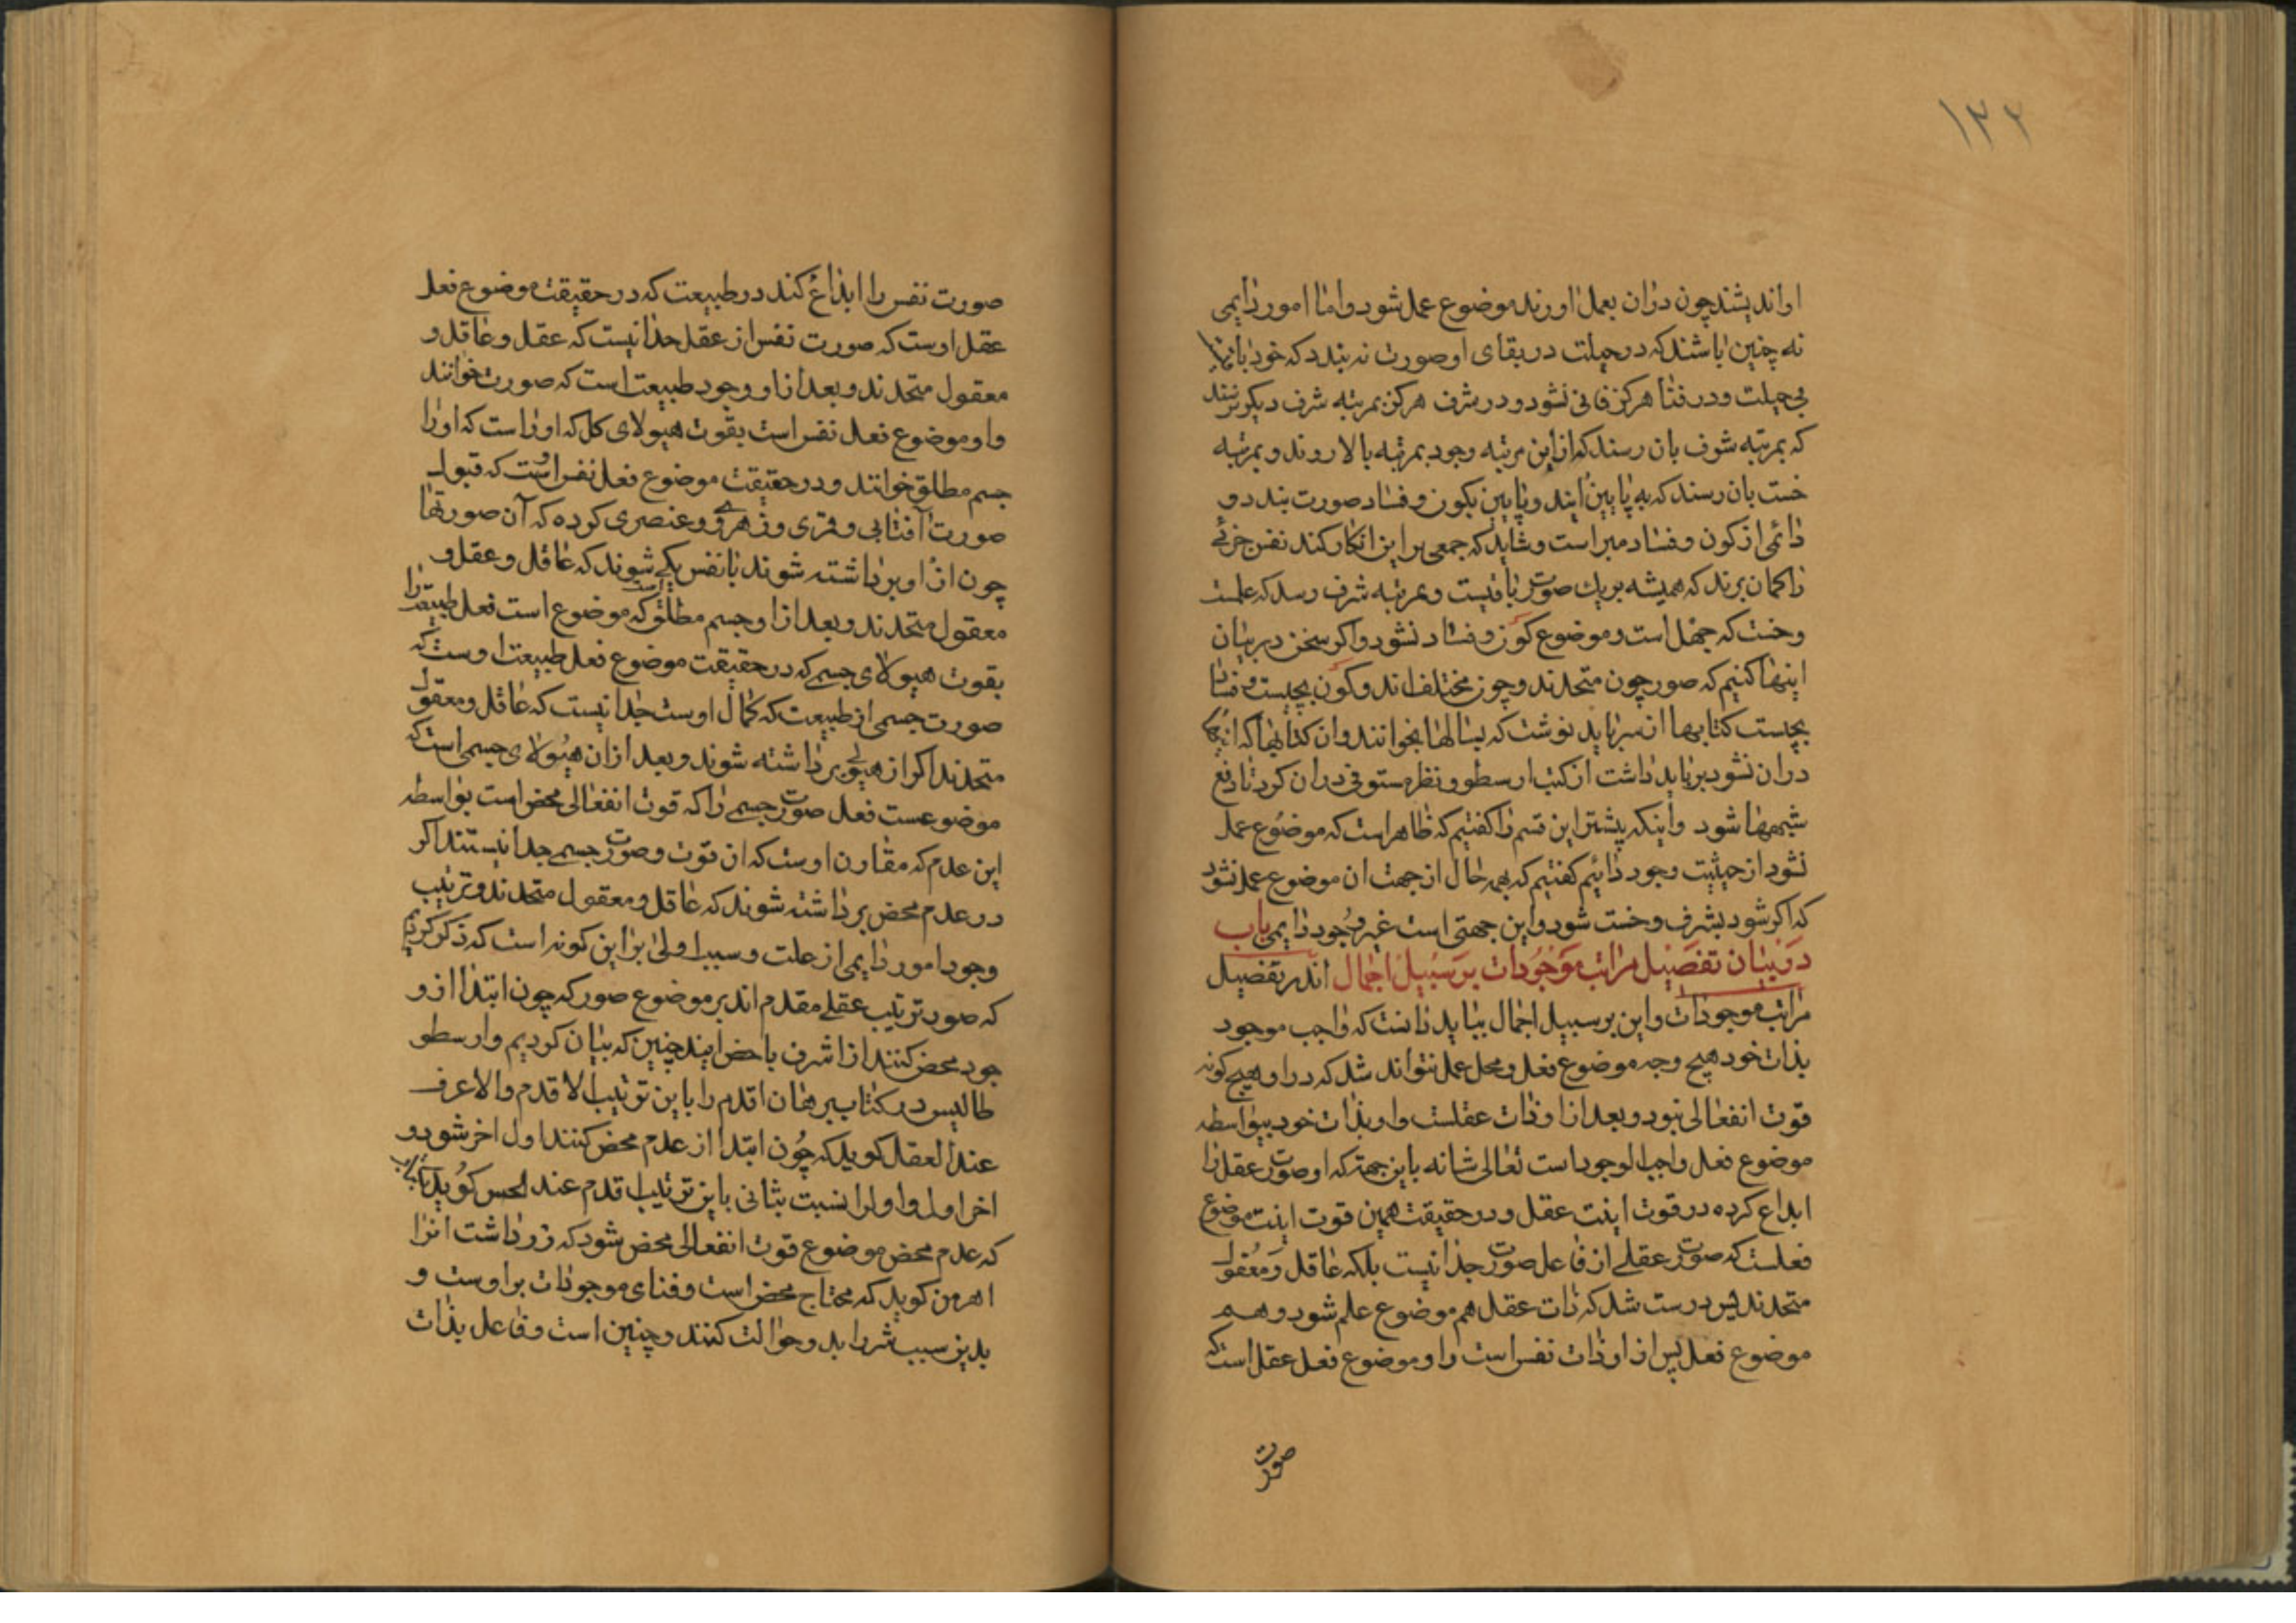 ۱۳۲
او اندیشند چون دران بعمل اورند موضوع عمل شود واما امور دایمی
نه چنین باشند که در حیلت در بقای او صورت نه بندد که خود باقیند
بی حیلت و در فنا هرکز فانی نشود و در شرف هرکز بمرتبه شرف دیکر نرسند
که بمرتبه شرف بان رسند که ازاین مرتبه وجود بمرتبه بالا روند و بمرتبه
خست بان رسند که به پایین ایند و پایین بکون و فساد صورت بندد و
دائمی از کون و فساد مبراست و شاید که جمعی براین انکار کنند نفس جزئے
را کمان برند که همیشه بریك صورت باقیست و بمرتبه شرف رسد که علمست
وخست که جهل است و موضوع کون و فساد نشود واکر سخن در بیان
اینها کنیم که صور چون متحدند و چون مختلف اند وکون بچیست و فساد
بچیست کتابها از سر باید نوشت که بسالها بخوانند وان کتابها که
دران نشود برباید داشت از کتب ارسطو و نظر مستوفی دران کرد تا دفع
شبهها شود واینکه پیشتر این قسم را کفتیم که ظاهر است که موضوع عمل
نشود از حیثیت وجود دائیم کفتیم که بهر حال از جهت ان موضوع عمل نشود
که اکر شود بشرف وخست شود واین جهتی است غیر وجود دایمی باب
در بیان تفصیل مراتب موجودات بر سبیل اجمال اندر تفصیل
مراتب موجودات واین بر سبیل اجمال بباید دانست که واجب موجود
بذات خود هیچ وجه موضوع فعل و محل عمل نتواند شد که در او هیچ کونه
قوت انفعالی نبود و بعد ازا و ذات عقلست واو بذات خود بیواسطه
موضوع فعل واجب الوجود است تعالی شانه باین جهة که او صورت عقل را
ابداع کرده در قوت اینت عقل و در حقیقت همین قوت اینت موضوع
فعلست که صورت عقلے از فاعل صورت جدا نیست بلکه عاقل و معقول
متحدند پس درست شد که ذات عقل هم موضوع علم شود و هم
موضوع فعل پس از او ذات نفس است واو موضوع فعل عقل است که
صورت
صورت نفس را ابداع کند در طبیعت که در حقیقت موضوع فعل
عقل اوست که صورت نفس از عقل جدا نیست که عقل وعاقل و
معقول متحدند و بعد ازا و وجود طبیعت است که صورت خوانند
واو موضوع فعل نفس است بقوت هیولای کل که او راست که او را
جسم مطلق خوانند و در حقیقت موضوع فعل نفس اوست که قبول
صورت آفتابی و قمری و زهرۀ و عنصری کرده که آن صورتها
چون ازاو برداشته شوند با نفس یکے شوند که عاقل و عقل و
معقول متحدند و بعد ازا و جسم مطلق است که موضوع است فعل طبیعت را
بقوت هیولای جسم که در حقیقت موضوع فعل طبیعت اوست که
صورت جسمی از طبیعت که کمال اوست جدا نیست که عاقل و معقول
متحدند اکر از هیولی برداشته شوند و بعد ازان هیولای جسم است که
موضوعست فعل صورت جسمے را که قوت انفعالی محض است بواسطه
این عدم که مقارن اوست که ان قوت وصورت جسمے جدا نیستند اکر
در عدم محض برداشته شوند که عاقل و معقول متحدند و ترتیب
وجود امور دایمی از علت وسبب اولی براین کونه است که ذکر کردیم
که صور ترتیب عقلے مقدم اند بر موضوع صور که چون ابتدا ازو
جود محض کنند از اشرف باخس ایند چنین که بیان کردیم وارسطو
طالیس در کتاب برهان اقدم را باین ترتیب الاقدم والاعرف
عند العقل کوید که چون ابتدا از عدم محض کنند اول اخر شود و
اخر اول واول را نسبت بثانی باین ترتیب اقدم عند الحس کوید
که عدم محض موضوع قوت انفعالی محض شود که زردداشت انرا
اهرمن کوید که محتاج محض است وفنای موجودات براوست و
بدین سبب شر را بدو حوالت کنند و چنین است و فاعل بذات